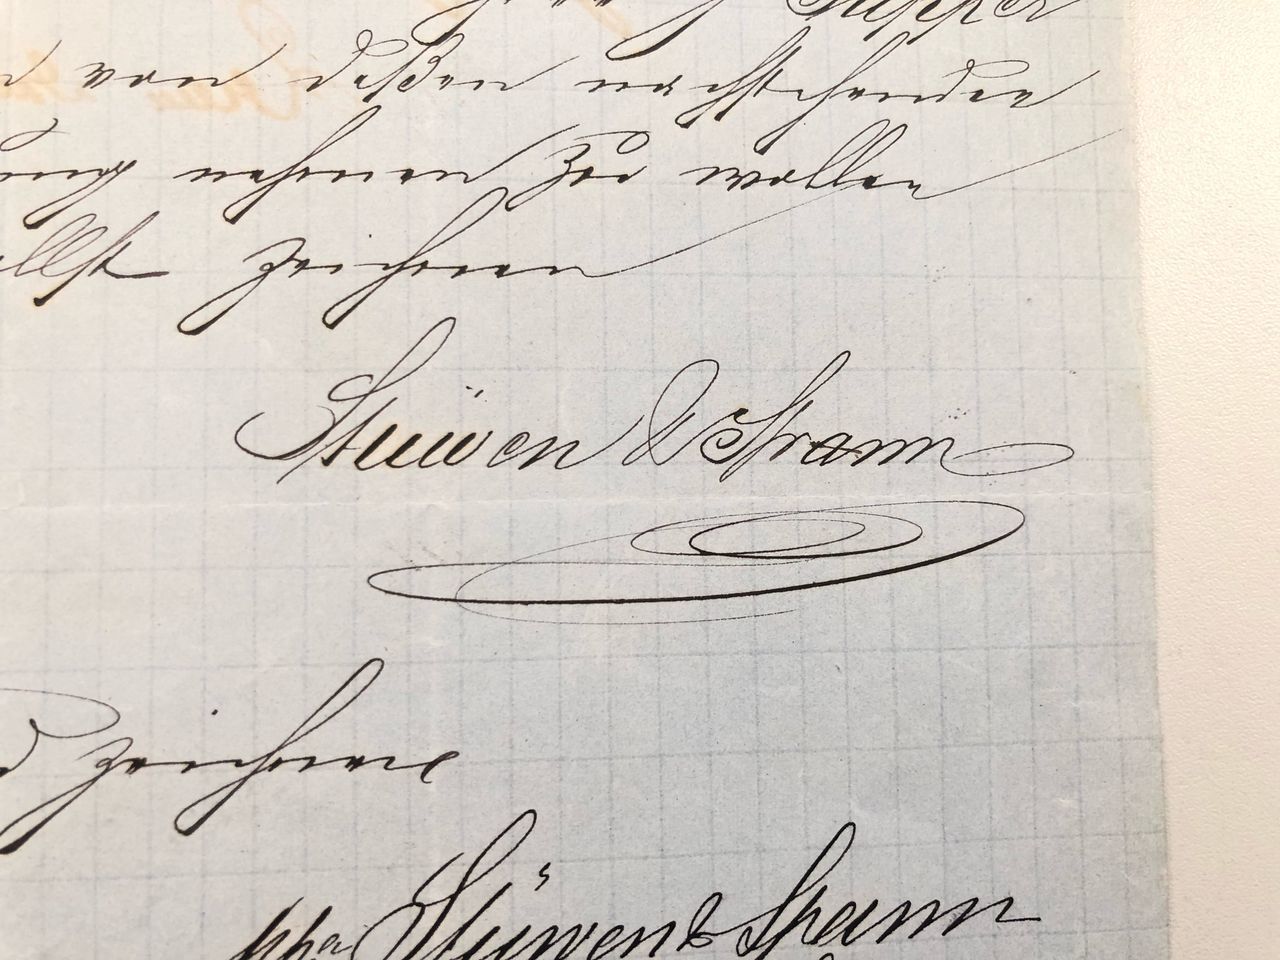 von deßen nachstehender
nehmen zu wollen
zeichnen
Stüwen & Spann
zeichnen
ppa Stüwen & Spann